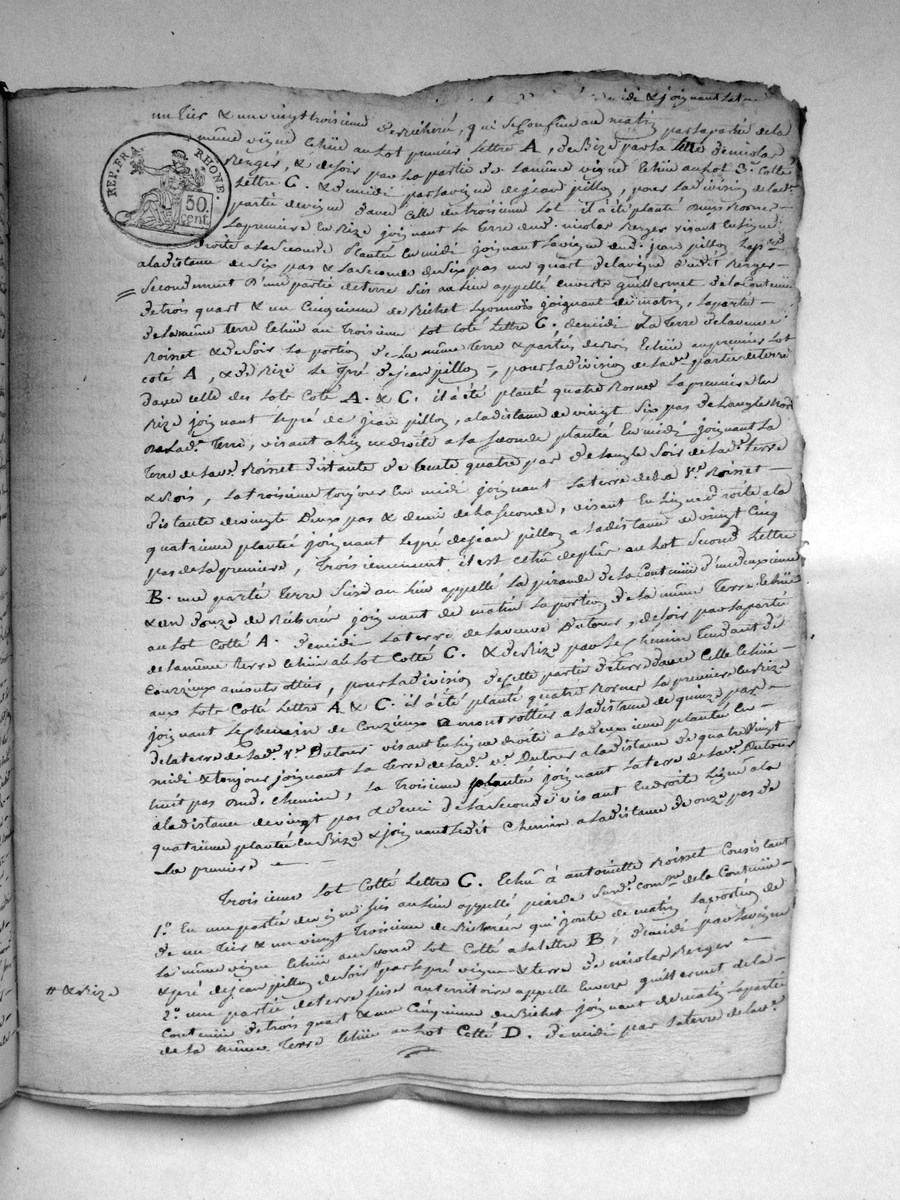 midi & joignant la
un tier & un vingt troisieme de bicherée, qui se confine au matin par la partie de la
même vigne echüe au lot premier lettre A, de bize par la terre de nicolas
Berger, & de soir par la partie de la même vigne echüe au lot 3e. cotté
lettre C. & de midi par la vigne de jean pillon, pour la division de lade.
partie de vigne d'avec celle du troisieme lot il a été planté deux bornes
la premiere en bize joignant la terre dud. nicolas Berger visant en ligne
droite a la seconde plantée en midi joignant la vigne dud. jean pillon
a la distance de six pas & la seconde de six pas un quart de la vigne dudit Berger
Secondement D'une partie de terre sise au lieu appellé en verse guillermet de la contenüe
de trois quart & un cinquieme de bichet Lyonnois joignant de matin, la partie
de la même terre echüe au troisieme lot coté lettre C. de midi la terre de la veuve
Roisset & de soir la portion de la même terre & partie de bois echüe au premier lot
coté A, & de bize le pré de jean pillon, pour la division de lade. partie de terre
d'avec celle des lots cotés A. & C. il a été planté quatre bornes la premiere en
bize joignant le pré de jean pillon, a la distance de vingt six pas de l'angle
de lade. terre, visant a ligne droite a la seconde plantée en midi joignant la
terre de lade. Roisset distante de trente quatre pas de l'angle soir de lade. terre
& bois, la troisieme toujours en midi joignant la terre de la ve. Roisset
distante de vingt deux pas & demi de la seconde, visant en ligne droite a la
quatrieme plantée joignant le pré de jean pillon a la distance de vingt cinq
pas de la premiere, Troisiemement, il est echu de plus au lot second lettre
B. une partie terre sise au lieu appellé la pirande de la contenüe d'une deuxieme
& un douze. de bicherée joignant de matin la portion de la même terre echüe
au lot cotté A. de midi la terre de la veuve Dutour, de soir par la partie
de la même terre echüe au lot cotté C. & de bize par le chemin tendant de
Courzieux a montrottier, pour la division de cette partie de terre d'avec celle echüe
aux lots cotté lettre A & C. il a été planté quatre bornes la premiere en bize
joignant le chemin de Courzieux a montrottier a la distance de quinze pas
de la terre de lade. ve. Dutour visant en ligne droite a la deuxieme plantée en
midi & toujours joignant la terre de lade. ve. Dutour a la distance de quatre vingt
huit pas dud. chemin, la troisieme plantée joignant la terre de lade. Dutour
a la distance de vingt pas & demi de la seconde visant en droite ligne a la
quatrieme plantée en bize & joignant ledit chemin a la distance de onze pas de
la premiere
Troisieme lot cotté lettre C. echu à antoinette Roisset consistant
1.o En une partie de vigne sise au lieu appellé pierde sur de. comne. de la contenüe
de un tier & un vingt troisieme de bicherée qui joute de matin la portion de
la même vigne echüe au second lot cotté a la lettre B, de midi par la vigne
& pré de jean pillon de soir // par le pré vigne & terre de nicolas Berger
// & bize
2.o une partie de terre sise au territoire appellé en verse guillermet de la
contenüe de trois quart & un cinquieme de bichet joignant de matin la partie
de la même terre echüe au lot cotté D. de midi par la terre de lade.
REP. FRA. RHONE.
50
cent.